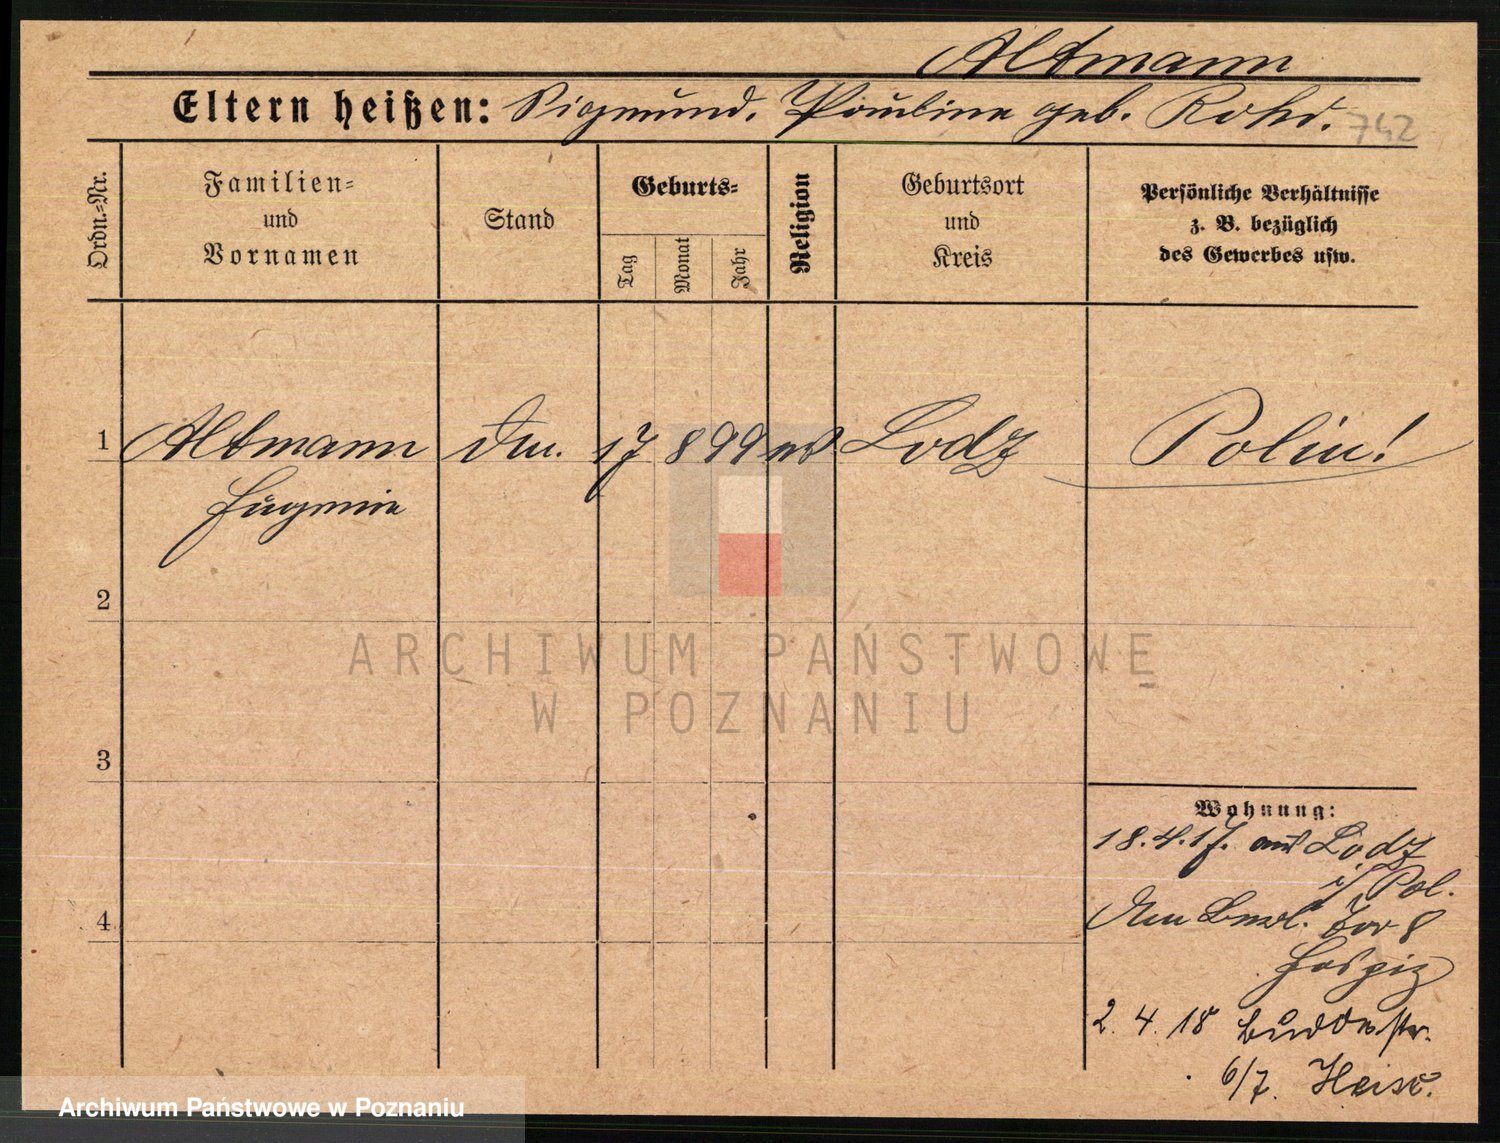 Altmann
Eltern heißen: Sigmund. Pauline geb. Rohr.
742
Ordn.=Nr.
Familien=
und
Vornamen
Stand
Geburts=
Tag
Monat
Jahr
Religion
Geburtsort
und
Kreis
Persönliche Verhältnisse
z. B. bezüglich
des Gewerbes usw.
1 Altmann 17 8 99 Lodz Polin!
Eugenie
2
3
4
Wohnung:
18.4.17. aus Lodz
i/ Pol.
Am Berl. Tor 8
Hospiz
2. 4. 18 Buddestr.
6/7.
ARCHIWUM PAŃSTWOWE
W POZNANIU
Archiwum Państwowe w Poznaniu